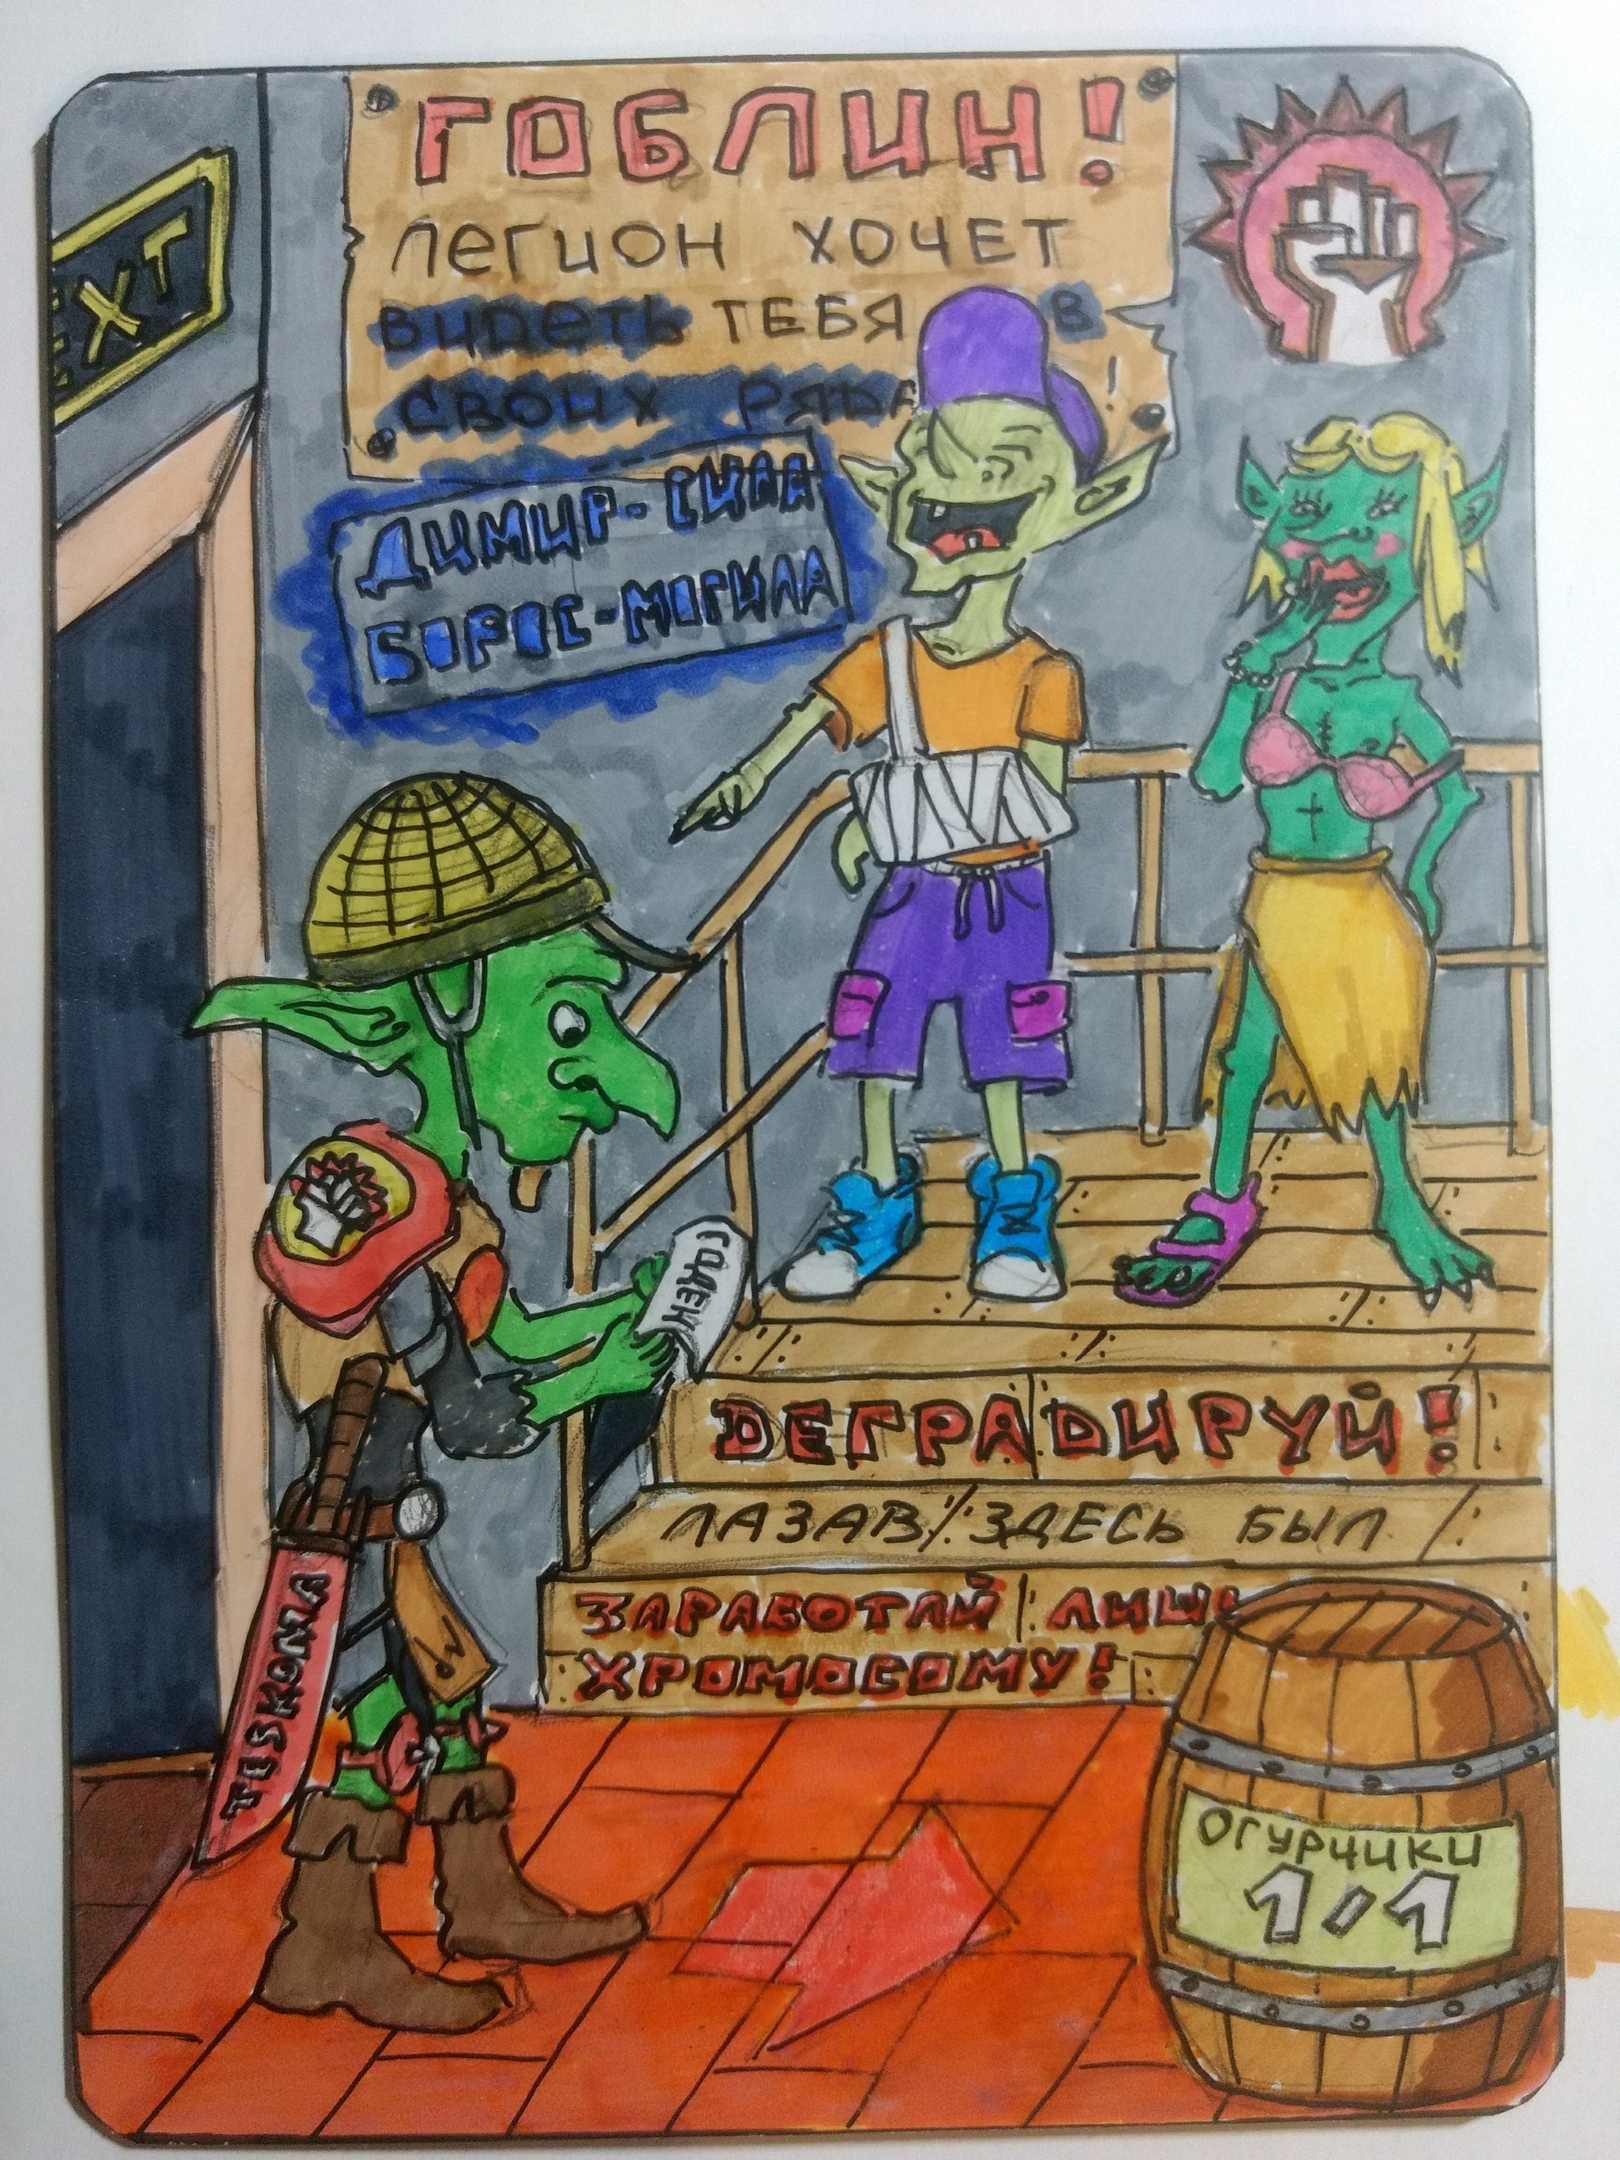 EXT
ГОБЛИН!
ЛЕГИОН ХОЧЕТ
ВИДЕТЬ ТЕБЯ В
СВОИХ РЯДА !
ДИМИР-СИЛА
БОРОС-МОГИЛА
ГОДЕН
ДЕГРАДИРУЙ!
ЛАЗАВ ЗДЕСЬ БЫЛ
ЗАРАБОТАЙ ЛИШ
ХРОМОСОМУ!
ОГУРЧИКИ
1/1